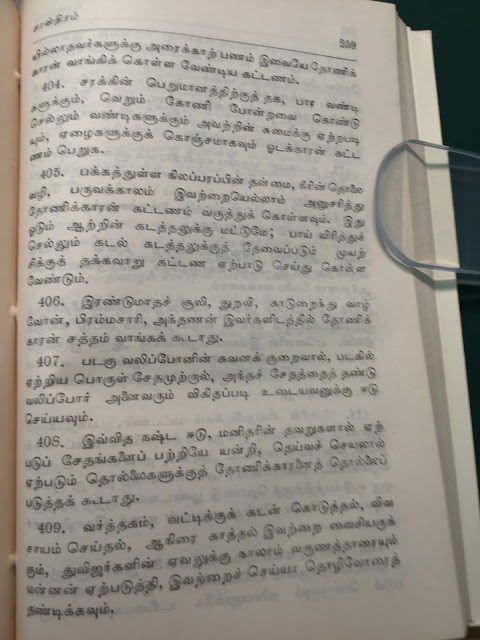 சாஸ்திரம் 259
யில்லாதவர்களுக்கு அரைக்காற் பணம் இவையே தோணிக்
காரன் வாங்கிக் கொள்ள வேண்டிய கட்டணம்.
404. சரக்கின் பெறுமானத்திற்குத் தக, பார வண்டி
களுக்கும், வெறும் கோணி போன்றவை கொண்டு
செல்லும் வண்டிகளுக்கும் அவற்றின் சுமைக்கு ஏற்றபடி
யும், ஏழைகளுக்குக் கொஞ்சமாகவும் ஓடக்காரன் கட்ட
ணம் பெறுக.
405. பக்கத்துள்ள நிலப்பரப்பின் தன்மை, நீரின் தொலை
வழி, பருவக்காலம் இவற்றையெல்லாம் அனுசரித்து
தோணிக்காரன் கட்டணம் வகுத்துக் கொள்ளவும். இது
ஓடும் ஆற்றின் கடத்தலுக்கு மட்டுமே; பாய் விரித்துச்
செல்லும் கடல் கடத்தலுக்குத் தேவைப்படும் முயற்
சிக்குத் தக்கவாறு கட்டண ஏற்பாடு செய்து கொள்ள
வேண்டும்.
406. இரண்டுமாதச் சூலி, துறவி, காடுறைந்து வாழ்
வோன், பிரம்மசாரி, அந்தணன் இவர்களிடத்தில் தோணிக்
காரன் சத்தம் வாங்கக் கூடாது.
407. படகு வலிப்போனின் கவனக் குறைவால், படகில்
ஏற்றிய பொருள் சேதமுற்றால், அந்தச் சேதத்தைத் தண்டு
வலிப்போர் அனைவரும் விகிதப்படி உடையவனுக்கு ஈடு
செய்யவும்.
408. இவ்வித நஷ்ட ஈடு, மனிதரின் தவறுகளால் ஏற்
படுப் சேதங்களைப் பற்றியே யன்றி, தெய்வச் செயலால்
ஏற்படும் தொல்லைகளுக்குத் தோணிக்காரனைத் தொல்லைப்
படுத்தக் கூடாது.
409. வர்த்தகம், வட்டிக்குக் கடன் கொடுத்தல், விவ
சாயம் செய்தல், ஆநிரை காத்தல் இவற்றை வைசியருக்
கும், துவிஜர்களின் ஏவலுக்கு நாலாம் வருணத்தாரையும்
மன்னன் ஏற்படுத்தி, இவற்றைச் செய்யா தொழிவோரைத்
தண்டிக்கவும்.